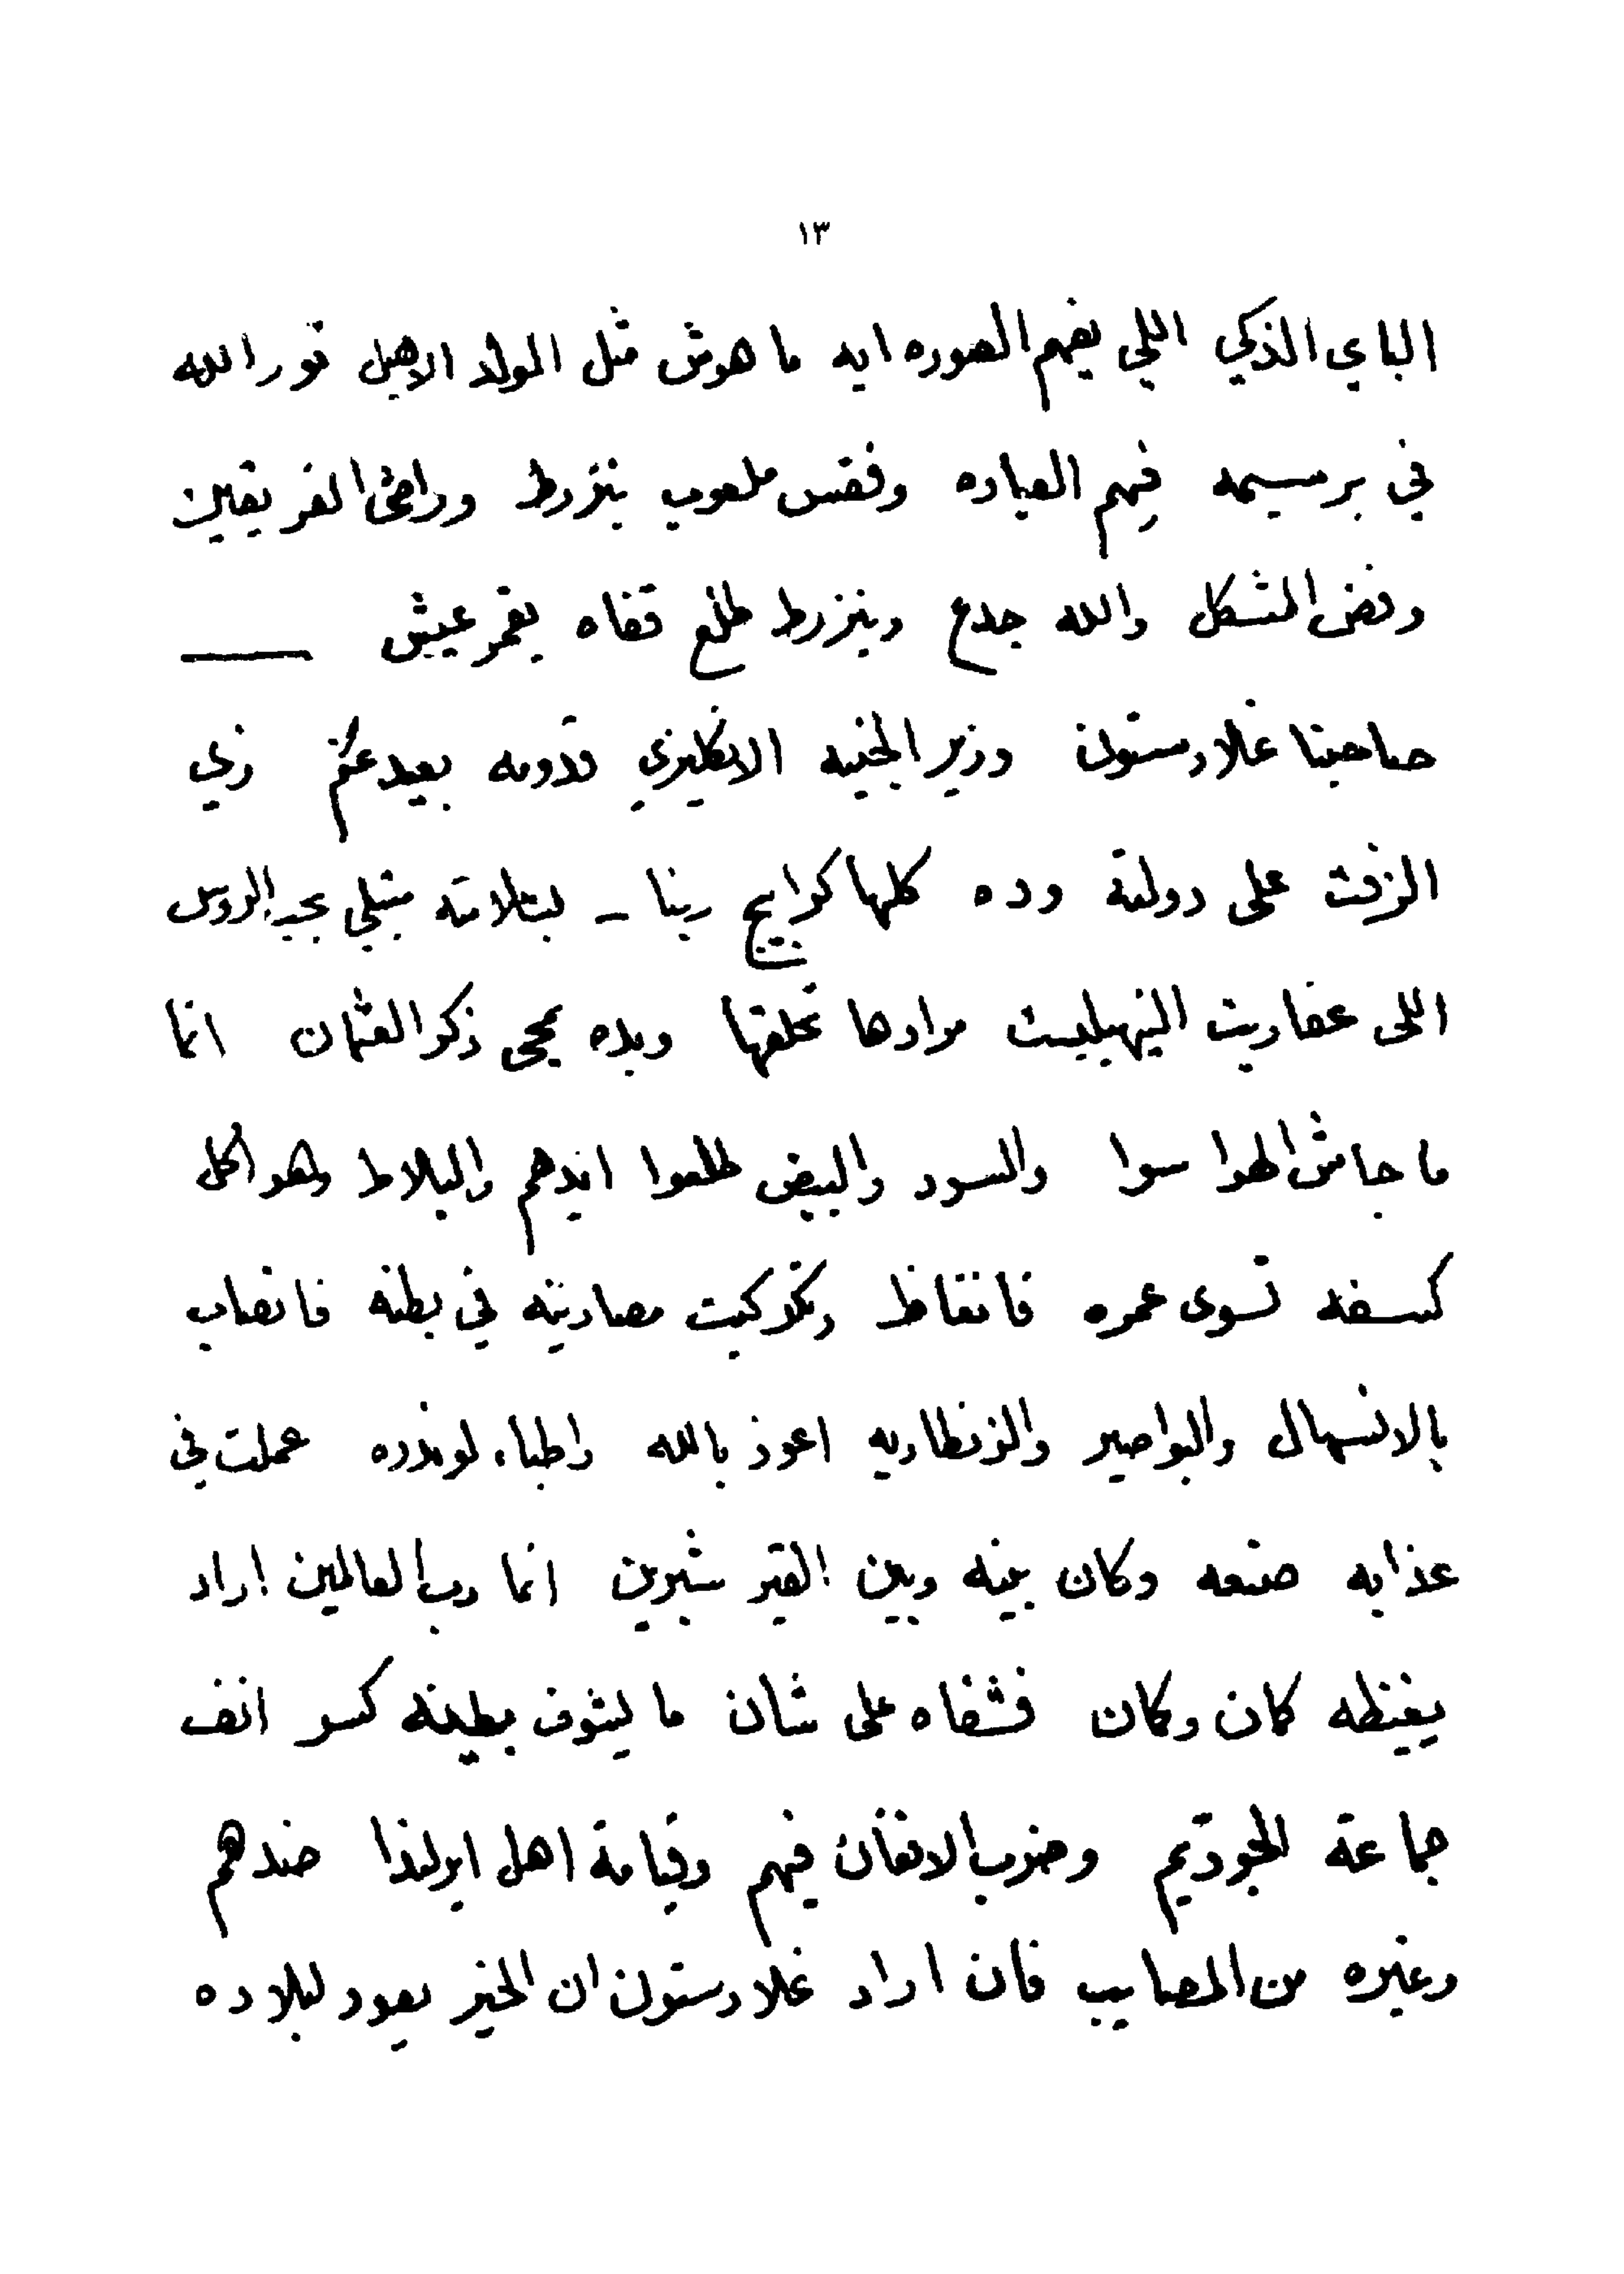 ١٣
الباي الذكي اللي يفهم الصوره ايه ما هوش مثل الولد الاهبل تور الله
في برسيمه فهم العباره وفقس ملعوب ينزرط وراضى الفريقين
وفض المشكل والله جدع وينزرط طلع قفاه يقمر عيش
صاحبنا غلادستون وزير الجنيه الانكليزي قدومه بعيد عنكم زي
الزفت على دولته وده كلها كرابيج ربنا - لبتلاته مبتلي بحب الروس
اللى عفاريت النيهيليست مرادها تخلقها وبده يمحى ذكر العثمان انما
ما جاش الهوا سوا والسود والبيض طلعوا ايدهم والبلاط وهو اكل
كسفه تسوى عمره فانغاظ وتكركبت مصارينه في بطنه فانصاب
بالانسهال والبواصير والزنطاريه اعوذ بالله واطباء لوندره عملت في
عذابه صنعه وكان بينه وبين القبر شبرين انما رب العالمين اراد
يغيظه كان وكان فشفاه على شان ما يشوف بعينه كسر انف
جماعة الجوديم وضرب الافغان فيهم وقيامة اهل ايرلندا ضدهم
وغيره من المصايب فان اراد غلادستون ان الخير يعود لبلاده